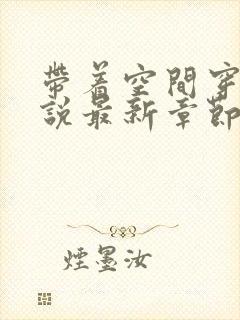 帶着空間穿
說最新章節
煙墨汝